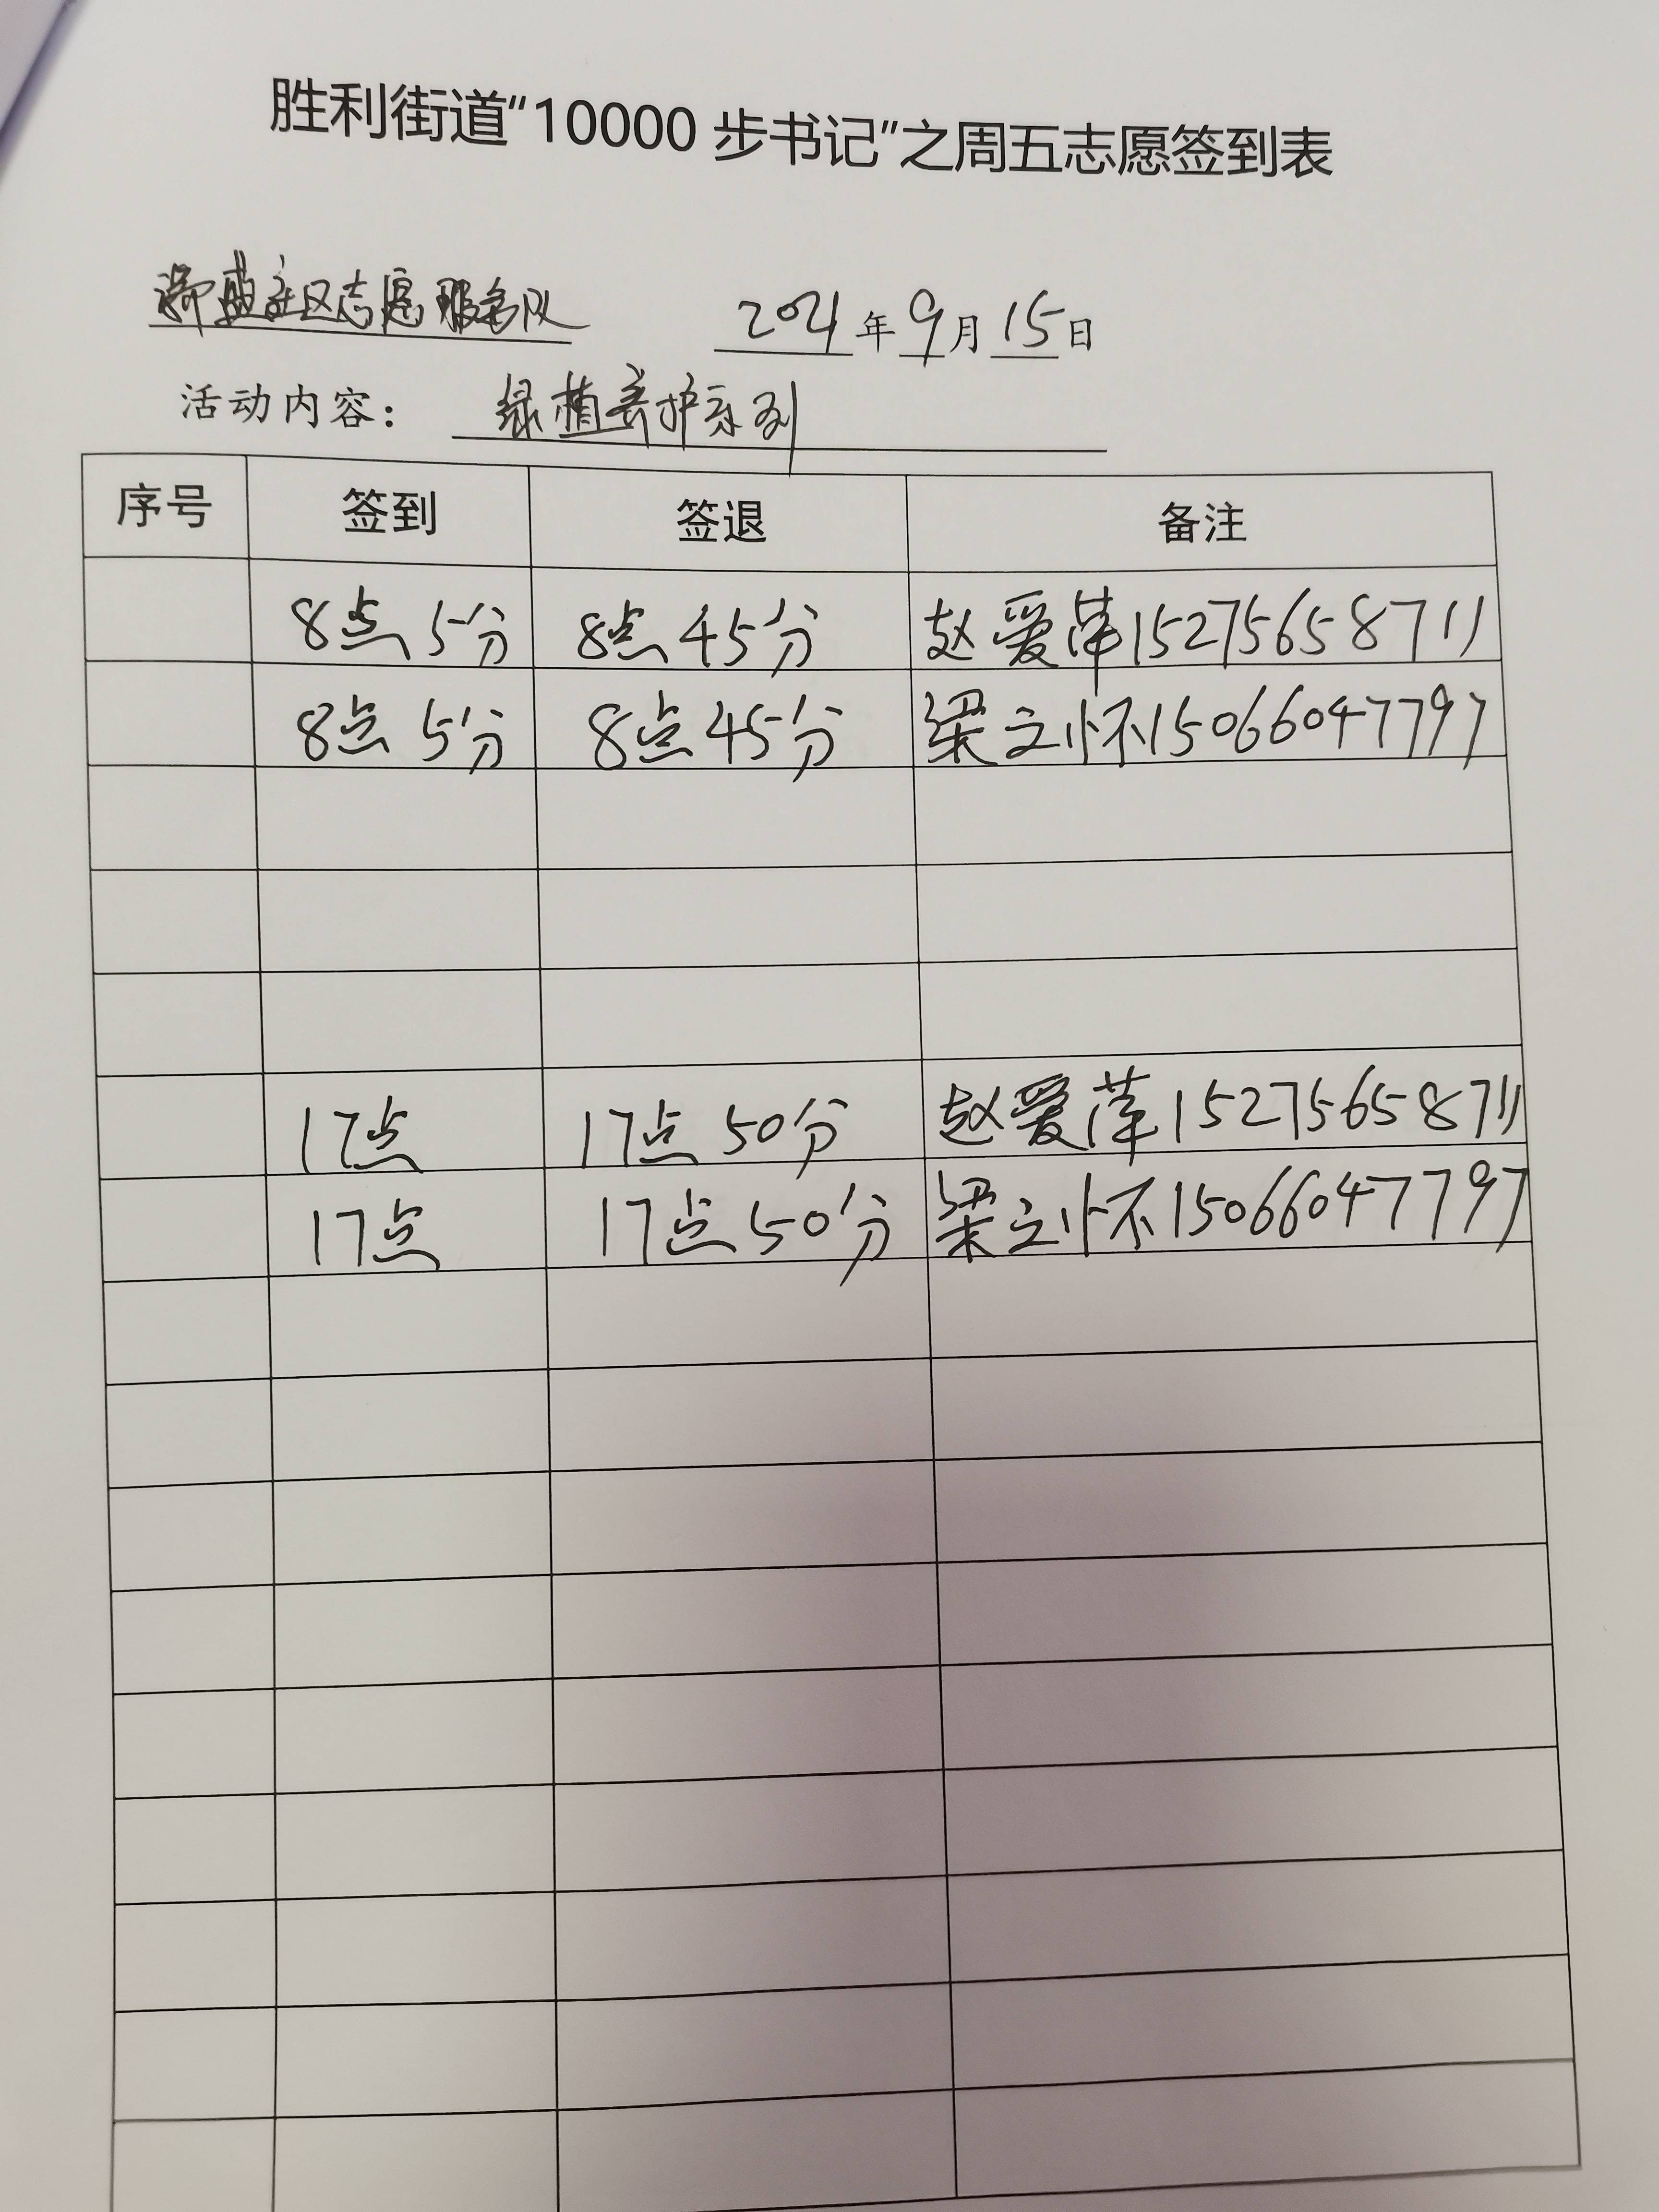 胜利街道“10000 步书记”之周五志愿签到表
社区志愿服务队 2021年9月15日
活动内容： 绿植养护系列
序号 签到 签退 备注
8点5分 8点45分 赵爱萍15275658711
8点5分 8点45分 梁立怀15066047797
17点 17点50分 赵爱萍15275658711
17点 17点50分 梁立怀15066047797